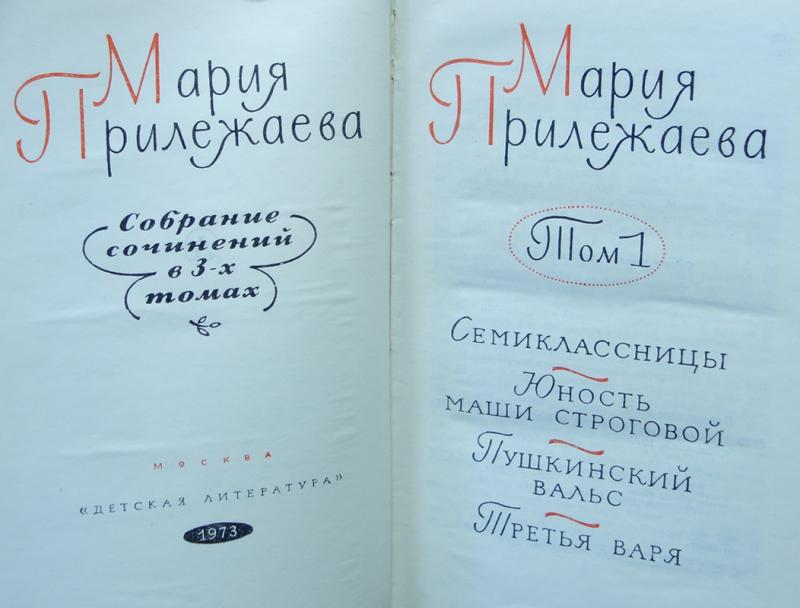 Мария
Прилежаева
Собрание
сочинений
в 3-х
томах
МОСКВА
«ДЕТСКАЯ ЛИТЕРАТУРА»
1973
Мария
Прилежаева
Том 1
СЕМИКЛАССНИЦЫ
ЮНОСТЬ
МАШИ СТРОГОВОЙ
ПУШКИНСКИЙ
ВАЛЬС
ТРЕТЬЯ ВАРЯ